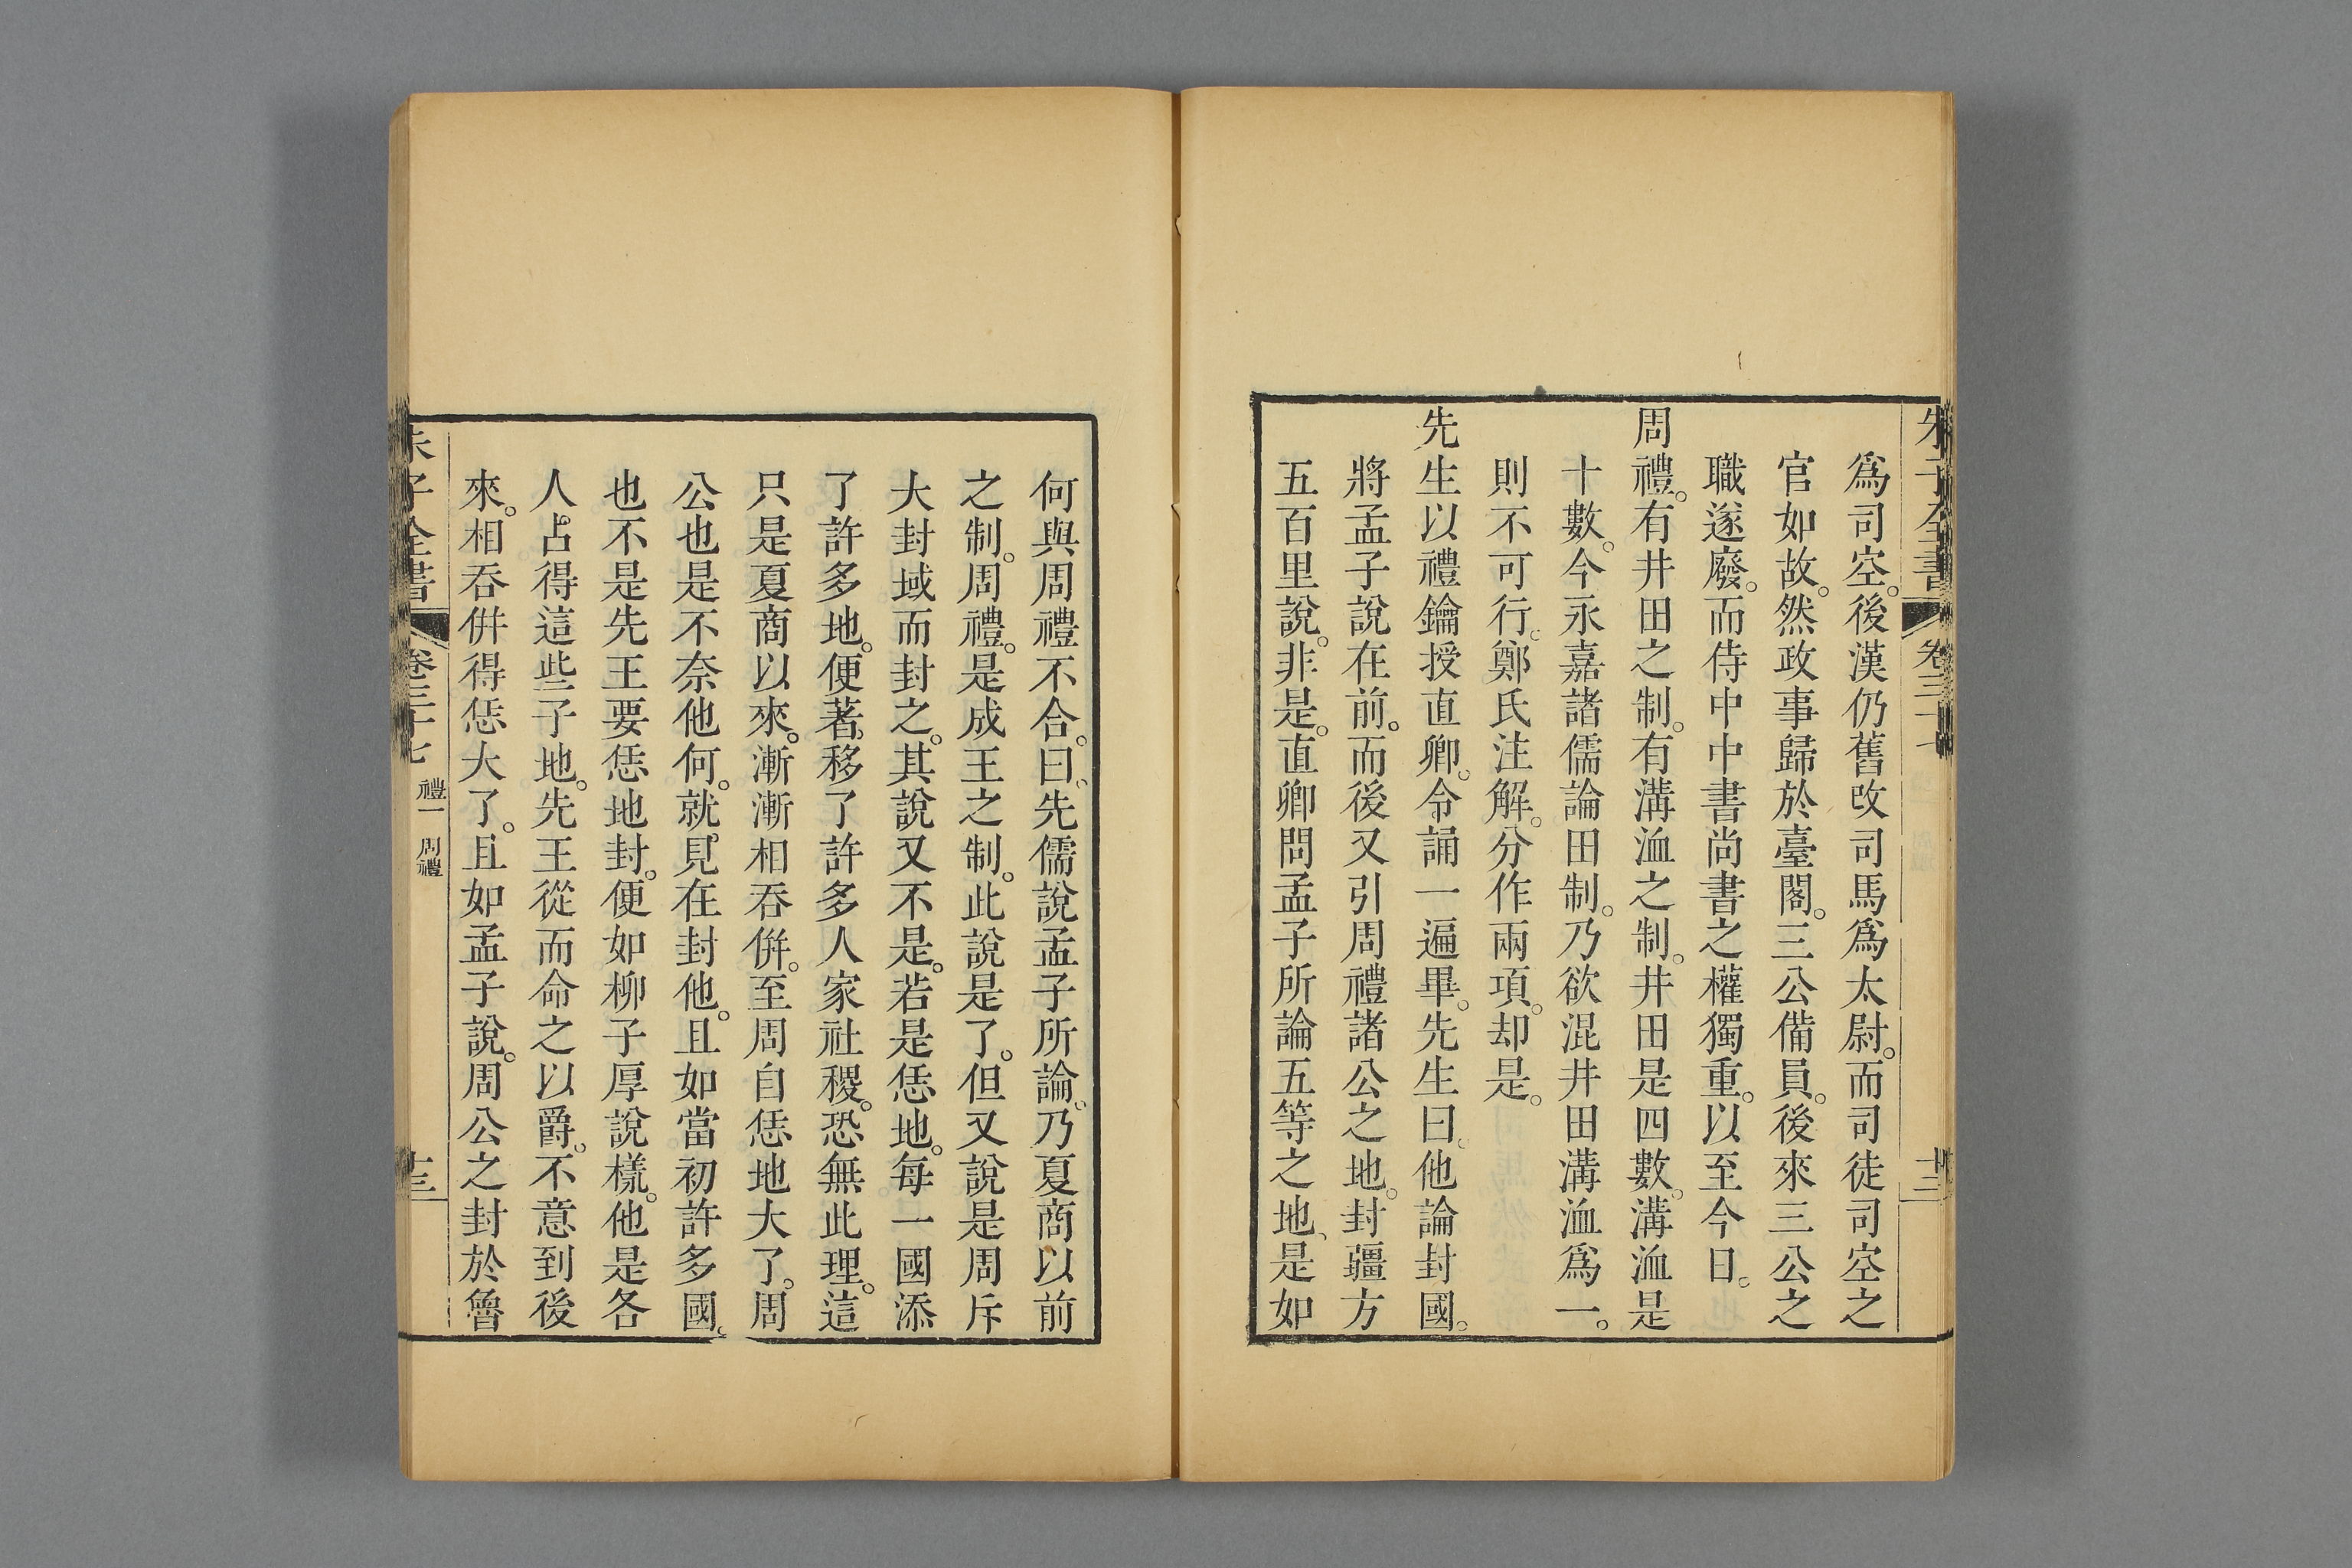 朱子全書 卷三十七 十二
爲司空。後漢仍舊改司馬爲太尉。而司徒司空之
官如故。然政事歸於臺閣。三公備員。後來三公之
職遂廢。而侍中中書尚書之權獨重。以至今日。
周禮。有井田之制。有溝洫之制。井田是四數。溝洫是
十數。今永嘉諸儒論田制。乃欲混井田溝洫爲一。
則不可行。鄭氏注解。分作兩項。却是。
先生以禮鑰授直卿。令誦一遍畢。先生曰。他論封國。
將孟子說在前。而後又引周禮諸公之地。封疆方
五百里說。非是。直卿問孟子所論五等之地、是如
何與周禮不合。曰。先儒說孟子所論。乃夏商以前
之制。周禮。是成王之制。此說是了。但又說是周斥
大封域而封之。其說又不是。若是恁地。每一國添
了許多地。便著移了許多人家社稷。恐無此理。這
只是夏商以來。漸漸相吞併。至周自恁地大了。周
公也是不奈他何。就見在封他。且如當初許多國。
也不是先王要恁地封。便如柳子厚說樣。他是各
人占得這些子地。先王從而命之以爵。不意到後
來。相吞併得恁大了。且如孟子說。周公之封於魯
朱子全書 卷三十七 禮一 周禮 十三